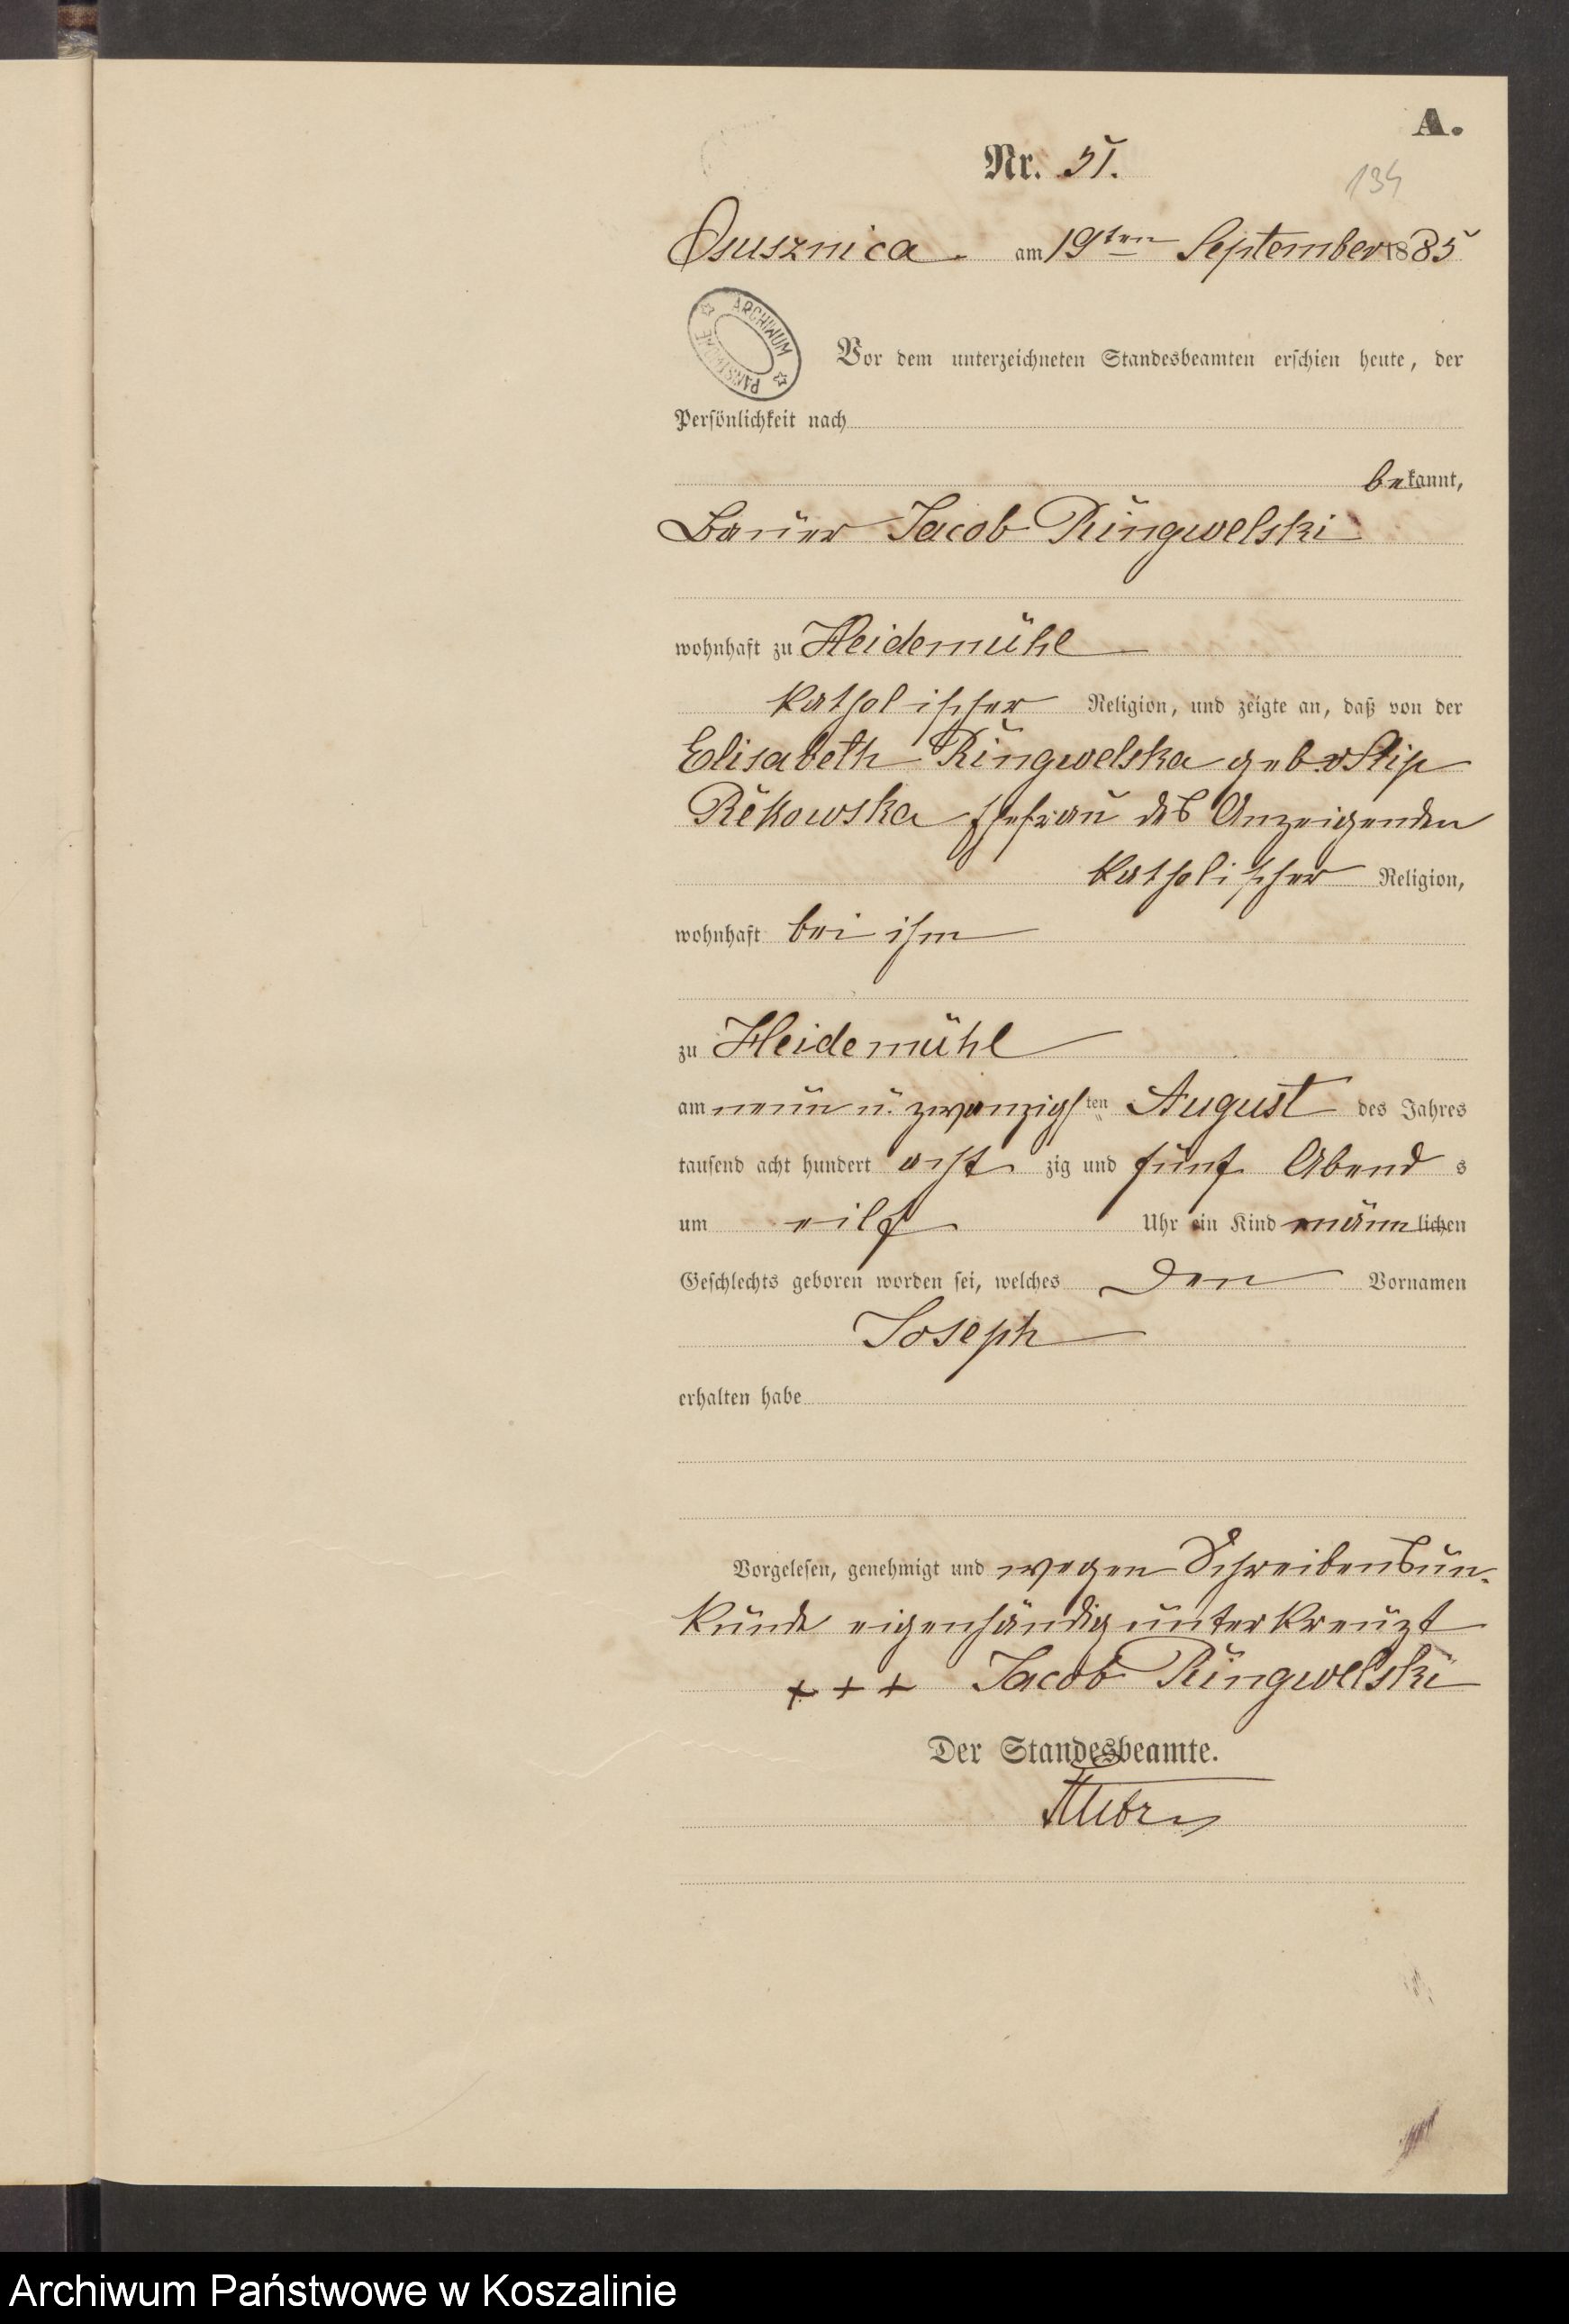 A.
Nr. 51.
134
Osusznica am 19ten September 1885
ARCHIWUM PAŃSTWOWE
Vor dem unterzeichneten Standesbeamten erschien heute, der
Persönlichkeit nach
bekannt,
Bauer Jacob Ringwelski
wohnhaft zu Heidemühl
katholischer Religion, und zeigte an, daß von der
Elisabeth Ringwelska geb. v Stip
Rekowska Ehefrau des Anzeigenden
katholischer Religion,
wohnhaft bei ihm
zu Heidemühl
am neun u. zwanzigsten August des Jahres
tausend acht hundert acht zig und fünf Abend s
um eilf Uhr ein Kind männlichen
Geschlechts geboren worden sei, welches den Vornamen
Joseph
erhalten habe
Vorgelesen, genehmigt und wegen Schreibensun-
kunde eigenhändig unterkreuzt
+ + + Jacob Ringwelski
Der Standesbeamte.
Archiwum Państwowe w Koszalinie